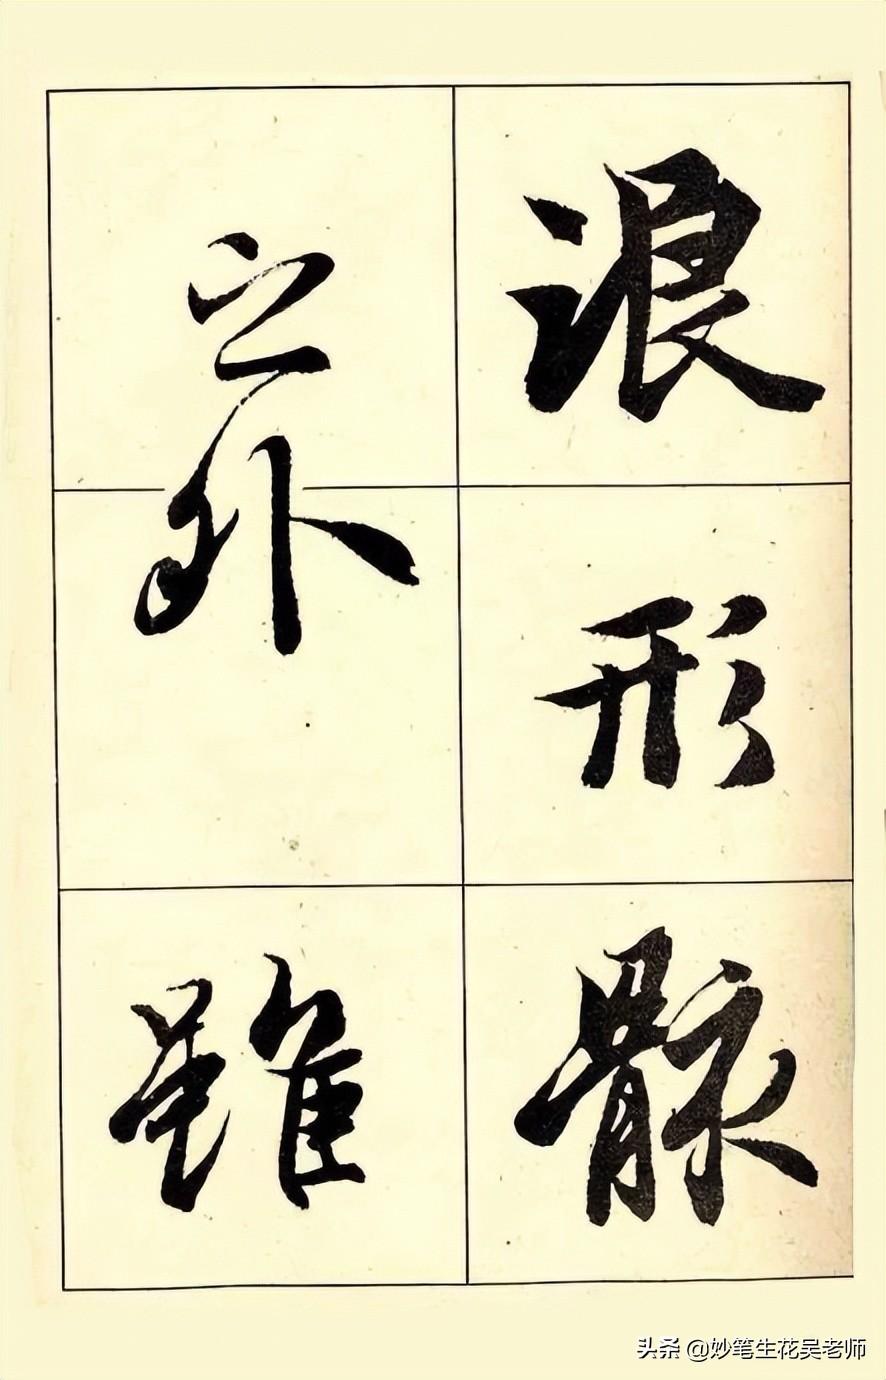 浪形骸
之外雖
头条 @妙笔生花吴老师